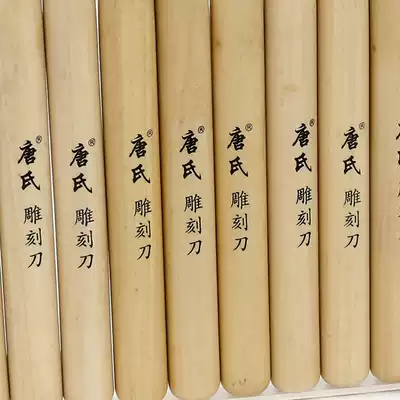 唐氏® 雕刻刀
唐氏® 雕刻刀
唐氏® 雕刻刀
唐氏® 雕刻刀
唐氏® 雕刻刀
唐氏® 雕刻刀
唐氏® 雕刻刀